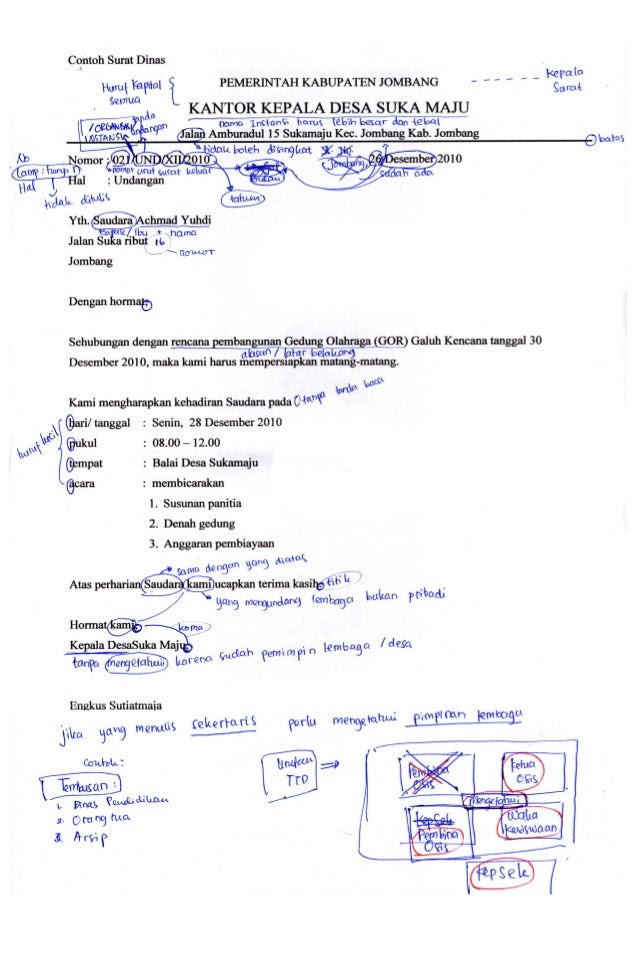 Contoh Surat Dinas
Huruf Kapital
semua
PEMERINTAH KABUPATEN JOMBANG
Kepala
Surat
KANTOR KEPALA DESA SUKA MAJU
nama Instansi harus lebih besar dan tebal
/ORGANISASI
INSTANSI
tanda
undangan
Jalan Amburadul 15 Sukamaju Kec. Jombang Kab. Jombang
batas
tidak boleh disingkat
No
Lamp : hanya 1
Hal
tidak ditulis
Nomor : 021/UND/XII/2010
Jombang, 26 Desember 2010
nomor urut surat keluar
bulan
sudah ada
Hal : Undangan
tahun
Yth. Saudara Achmad Yuhdi
Bapak/Ibu + nama
Jalan Suka ribut 16
nomor
Jombang
Dengan hormat,
Sehubungan dengan rencana pembangunan Gedung Olahraga (GOR) Galuh Kencana tanggal 30
alasan / latar belakang
Desember 2010, maka kami harus mempersiapkan matang-matang.
Kami mengharapkan kehadiran Saudara pada
tanpa tanda baca
huruf kecil
hari/ tanggal : Senin, 28 Desember 2010
pukul : 08.00 – 12.00
tempat : Balai Desa Sukamaju
acara : membicarakan
1. Susunan panitia
2. Denah gedung
3. Anggaran pembiayaan
sama dengan yang diatas
Atas perharian Saudara kami ucapkan terima kasih. titik
yang mengundang lembaga bukan pribadi
Hormat kami,
koma
Kepala DesaSuka Maju,
tanpa mengetahui karena sudah pemimpin lembaga / desa
Engkus Sutiatmaja
jika yang menulis sekertaris perlu mengetahui pimpinan lembaga
Contoh:
Tembusan :
1. Dinas Pendidikan
2. Orang tua
3. Arsip
Urutan
TTD
Pembina
Osis
Ketua
Osis
Mengetahui
Kepsek
Pembina
Osis
Waka
Kesiswaan
Kepsek